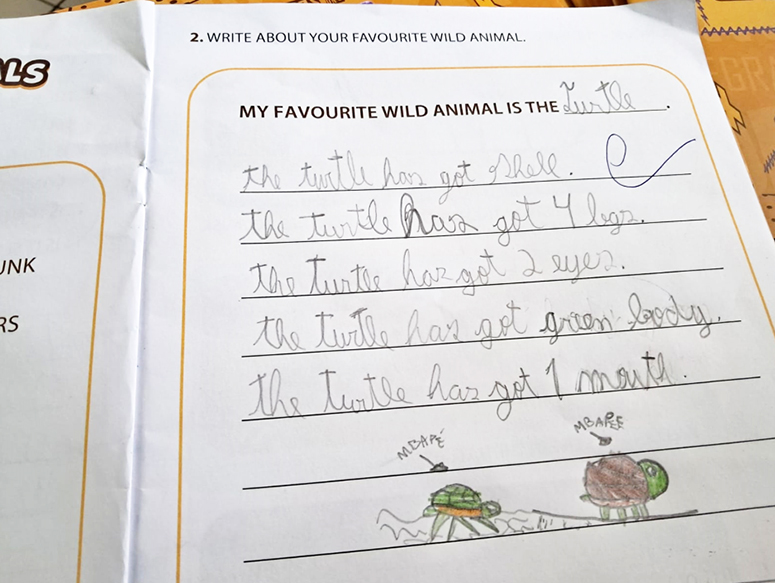 2. WRITE ABOUT YOUR FAVOURITE WILD ANIMAL.
ALS
MY FAVOURITE WILD ANIMAL IS THE Turtle.
the turtle has got shell.
the turtle has got 4 legs.
UNK
the turtle has got 2 eyes.
RS
the turtle has got green body.
the turtle has got 1 mouth.
MBAPÉ
MBAPÉE